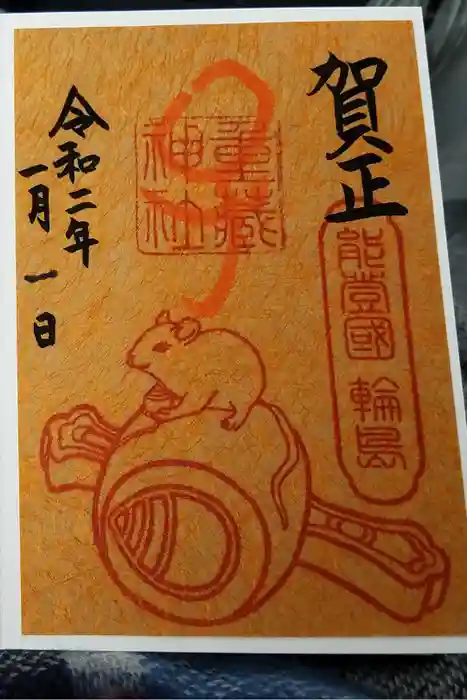 賀正
能登國 輪島
重蔵
神社
令和二年
一月一日